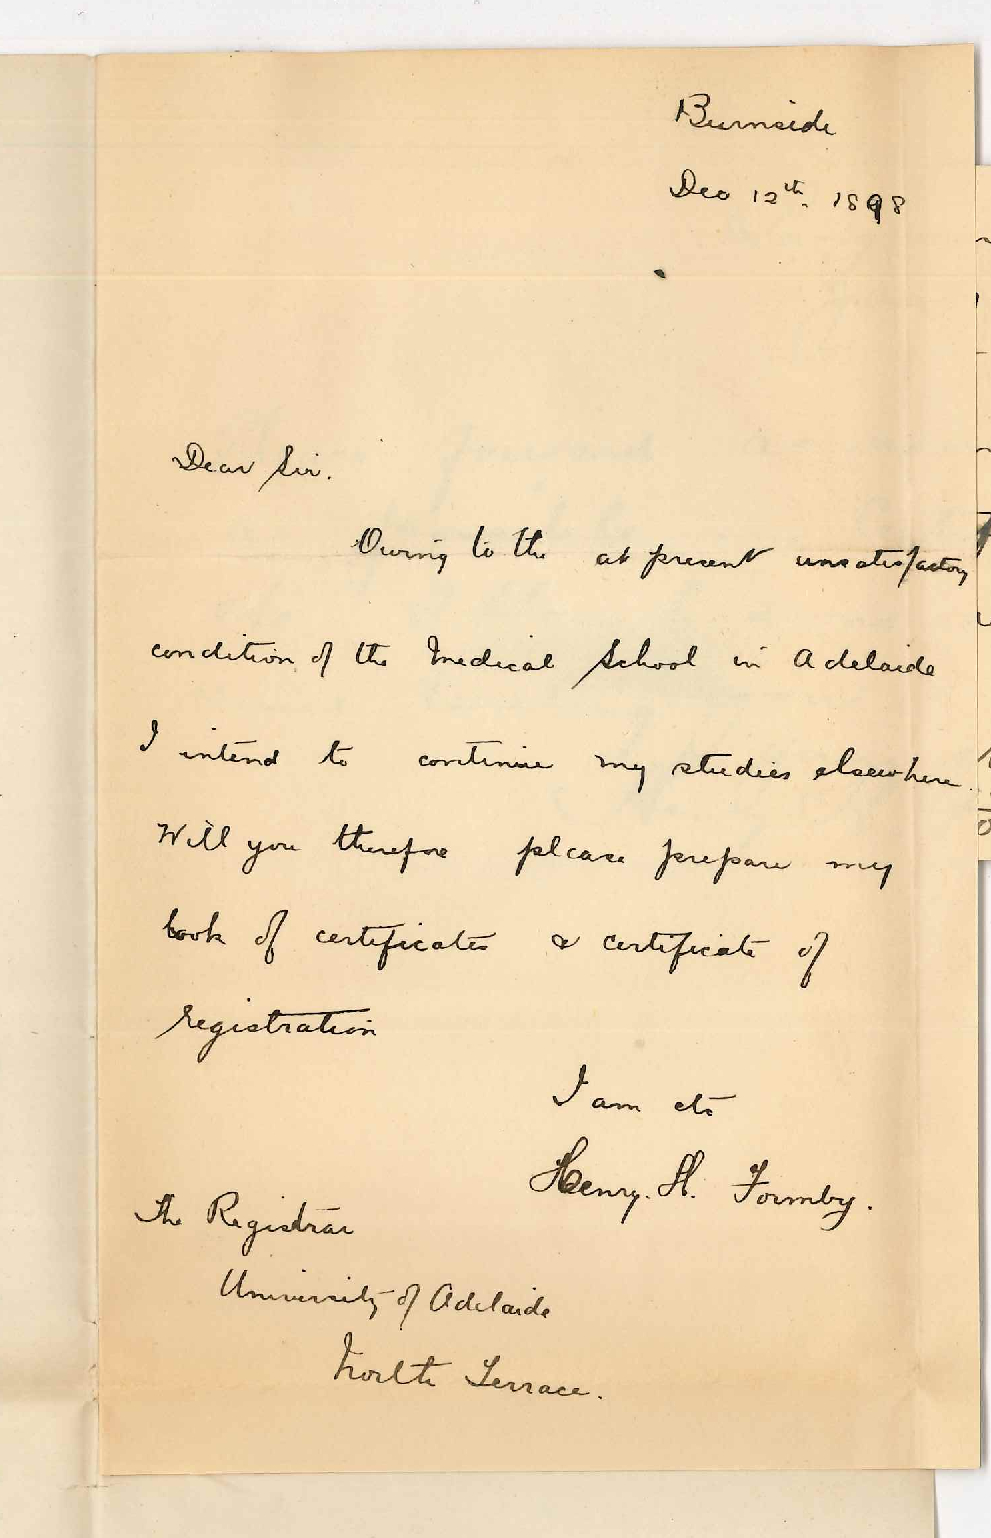 Burnside
Dec 12th. 1898
Dear Sir.
Owing to the at present unsatisfactory
condition of the Medical School in Adelaide
I intend to continue my studies elsewhere.
Will you therefore please prepare my
book of certificates & certificate of
registration
I am etc
Henry. H. Formby.
The Registrar
University of Adelaide
North Terrace.